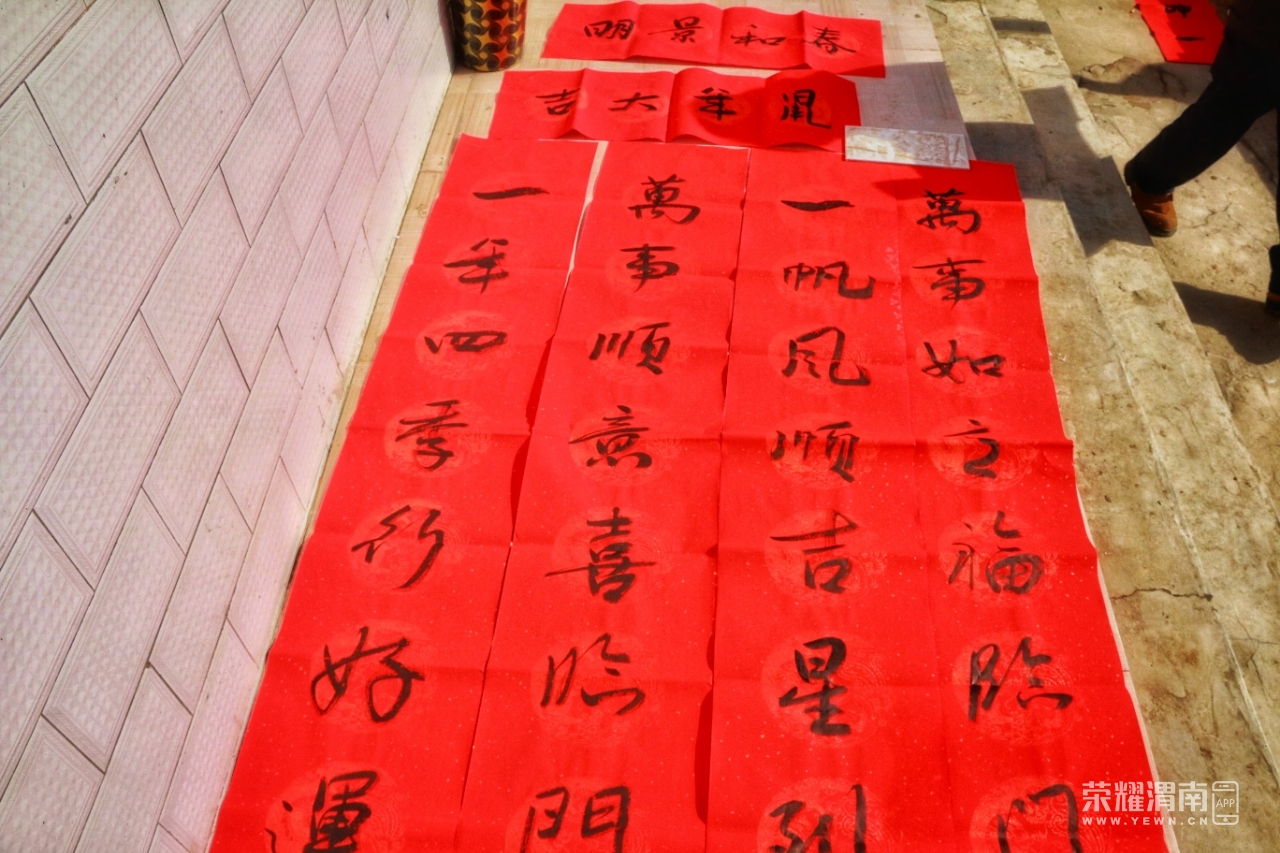 春和景明
鼠年大吉
萬事如意福临门
一帆风顺吉星到
萬事顺意喜临門
一年四季行好運
荣耀渭南
APP
WWW.YEWN.CN